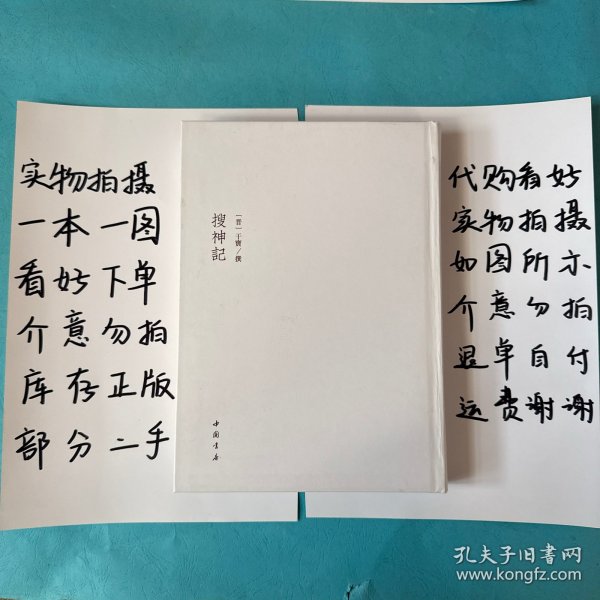 实物拍摄
一本一图
看好下单
介意勿拍
库存正版
部分二手
搜神記
［晋］干寶／撰
中国书店
代购看好
实物拍摄
如图所示
介意勿拍
退单自付
运费谢谢
孔夫子旧书网
www.kongfz.com